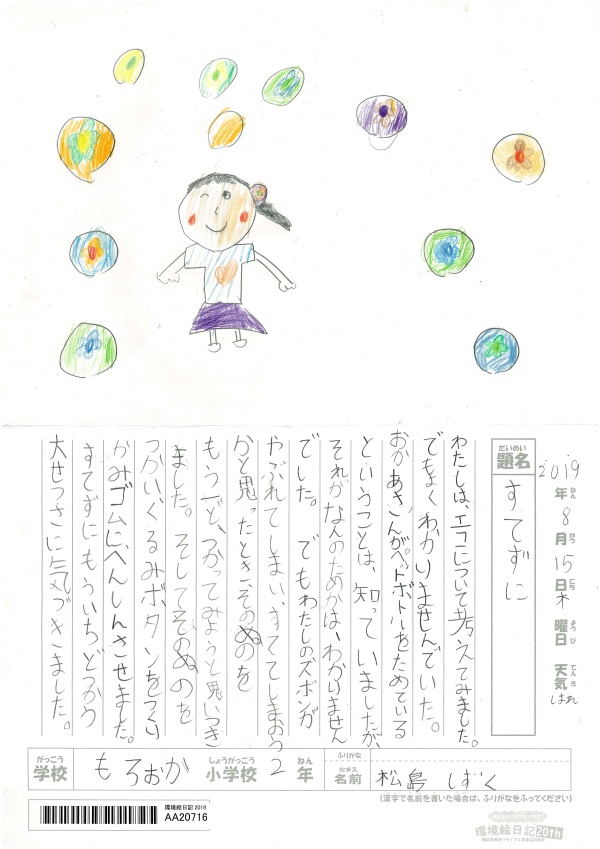 2019年ねん8月がつ15日にち木曜日ようび天気てんきはれ
だいめい
題名
すてずに
わたしは、エコについて考えてみました。
でもよくわかりませんでした。
おかあさんがペットボトルをためている
ということは、知っていましたが、
それがなんのためかは、わかりません
でした。でもわたしのズボンが
やぶれてしまい、すててしまおう
かと思ったとき、そのぬのを
もう一ど、つかってみようと思いつき
ました。そしてそのぬのを
つかい、くるみボタンをつくり
かみゴムに、へんしんさせました。
すてずにもういちどつかう
大せつさに気づきました。
がっこう
学校
もろおか
しょうがっこう
小学校
2
ねん
年
ふりがな
なまえ
名前
松島 しずく
(漢字で名前を書いた場合は、ふりがなをふってください)
環境絵日記 2019
AA20716
環境絵日記20th